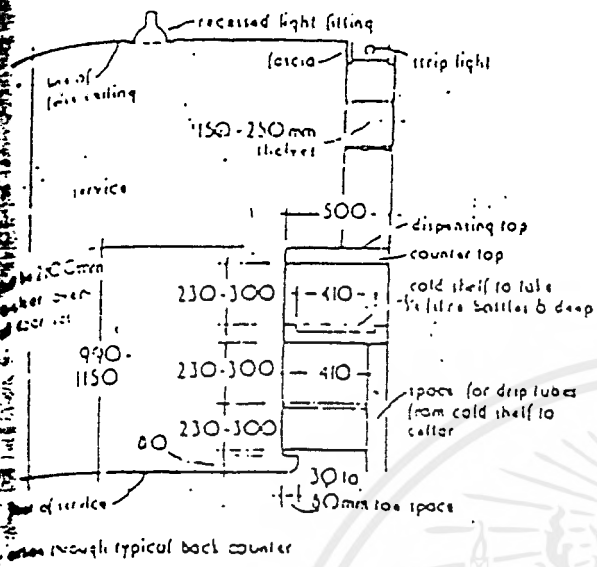 recessed light fitting
fascia
strip light
line of
false ceiling
150-250mm
shelves
service
500
dispensing top
counter top
cold shelf to take
litre bottles 6 deep
230-300
410
990-
1150
230-300
410
space for drip tubes
from cold shelf to
cellar
230-300
80
30 to
80mm toe space
of service
through typical back counter